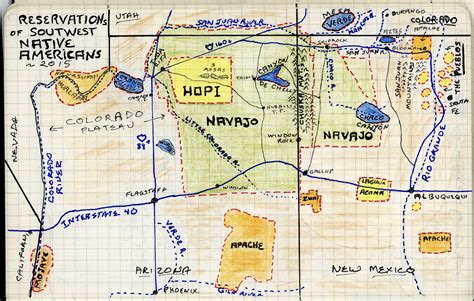 RESERVATIONS
OF SOUTWEST
NATIVE
AMERICANS
~ 2015
UTAH
SAN JUAN RIVER
MESA
VERDE
DURANGO
COLORADO
APACHE
AZTEC
SAN JUAN
HOPI
MESAS
CANYON
DE CHELLY
NAVAJO
NAVAJO
CHACO
CANYON
THE PUEBLOS
SANTA FE
NEVADA
COLORADO
PLATEAU
COLORADO
RIVER
LITTLE COLORADO R.
WINDOW
ROCK
GALLUP
RIO GRANDE
FLAGSTAFF
WINSLOW
INTERSTATE 40
ZUNI
LAGUNA
ACOMA
ALBUQUIQUI
VERDE R.
APACHE
APACHE
MOJAVE
ARIZONA
NEW MEXICO
PHOENIX
GILA RIVER